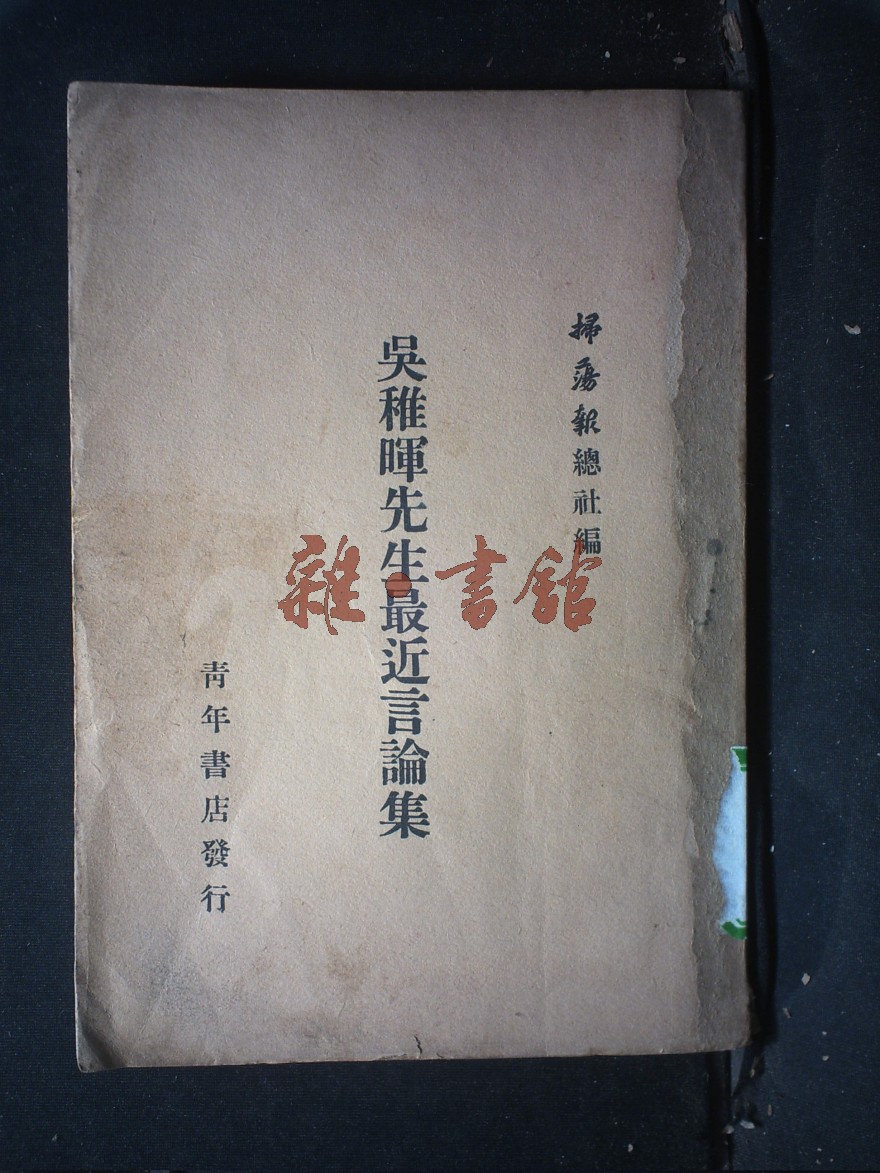 掃蕩報總社編
吳稚暉先生最近言論集
青年書店發行
雜·書館